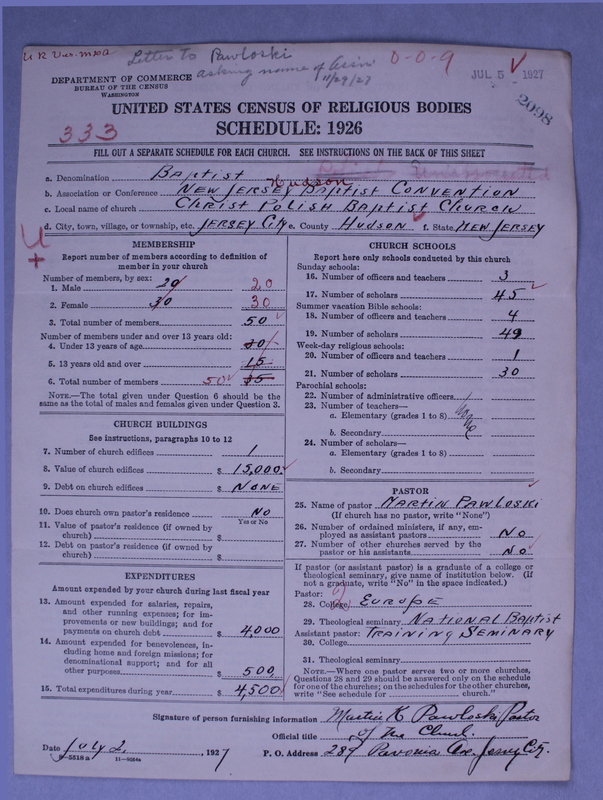 U R Ver. mxa
Letter to Pawloski
asking name of Assn
11/29/27
0-0-9
JUL 5 1927
2098
DEPARTMENT OF COMMERCE
BUREAU OF THE CENSUS
WASHINGTON
UNITED STATES CENSUS OF RELIGIOUS BODIES
SCHEDULE: 1926
333
FILL OUT A SEPARATE SCHEDULE FOR EACH CHURCH. SEE INSTRUCTIONS ON THE BACK OF THIS SHEET
a. Denomination Baptist
Hudson
b. Association or Conference NEW JERSEY BAPTIST CONVENTION
c. Local name of church CHRIST POLISH BAPTIST CHURCH
d. City, town, village, or township, etc. JERSEY CITY e. County HUDSON f. State NEW JERSEY
MEMBERSHIP
Report number of members according to definition of
member in your church
Number of members, by sex:
1. Male 20 20
2. Female 30 30
3. Total number of members 50
Number of members under and over 13 years old:
4. Under 13 years of age
5. 13 years old and over 15
6. Total number of members 50
NOTE.—The total given under Question 6 should be the
same as the total of males and females given under Question 3.
CHURCH BUILDINGS
See instructions, paragraphs 10 to 12
7. Number of church edifices 1
8. Value of church edifices $ 15,000.
9. Debt on church edifices $ NONE
10. Does church own pastor's residence? NO
Yes or No
11. Value of pastor's residence (if owned by
church) $
12. Debt on pastor's residence (if owned by
church) $
EXPENDITURES
Amount expended by your church during last fiscal year
13. Amount expended for salaries, repairs,
and other running expences; for im-
provements or new buildings; and for
payments on church debt $ 4,000
14. Amount expended for benevolences, in-
cluding home and foreign missions; for
denominational support; and for all
other purposes $ 500,
15. Total expenditures during year $ 4,500
CHURCH SCHOOLS
Report here only schools conducted by this church
Sunday schools:
16. Number of officers and teachers 3
17. Number of scholars 45
Summer vacation Bible schools:
18. Number of officers and teachers 4
19. Number of scholars 49
Week-day religious schools:
20. Number of officers and teachers 1
21. Number of scholars 30
Parochial schools:
22. Number of administrative officers
23. Number of teachers—
a. Elementary (grades 1 to 8) None
b. Secondary
24. Number of scholars—
a. Elementary (grades 1 to 8)
b. Secondary
PASTOR
25. Name of pastor MARTIN PAWLOSKI
(If church has no pastor, write "None")
26. Number of ordained ministers, if any, em-
ployed as assistant pastors NO
27. Number of other churches served by the
pastor or his assistants NO
If pastor (or assistant pastor) is a graduate of a college or
theological seminary, give name of institution below. (If
not a graduate, write "No" in the space indicated.)
Pastor:
28. College EUROPE
29. Theological seminary NATIONAL BAPTIST
Assistant pastor: TRAINING SEMINARY
30. College
31. Theological seminary
NOTE.—Where one pastor serves two or more churches,
Questions 28 and 29 should be answered only on the schedule
for one of the churches; on the schedules for the other churches,
write "See schedule for church."
Signature of person furnishing information Martin K Pawloski Pastor
Official title of the Church.
Date July 2, 1927
P. O. Address 289 Pavonia Ave. Jersey City.
8-5518a 11-9284a